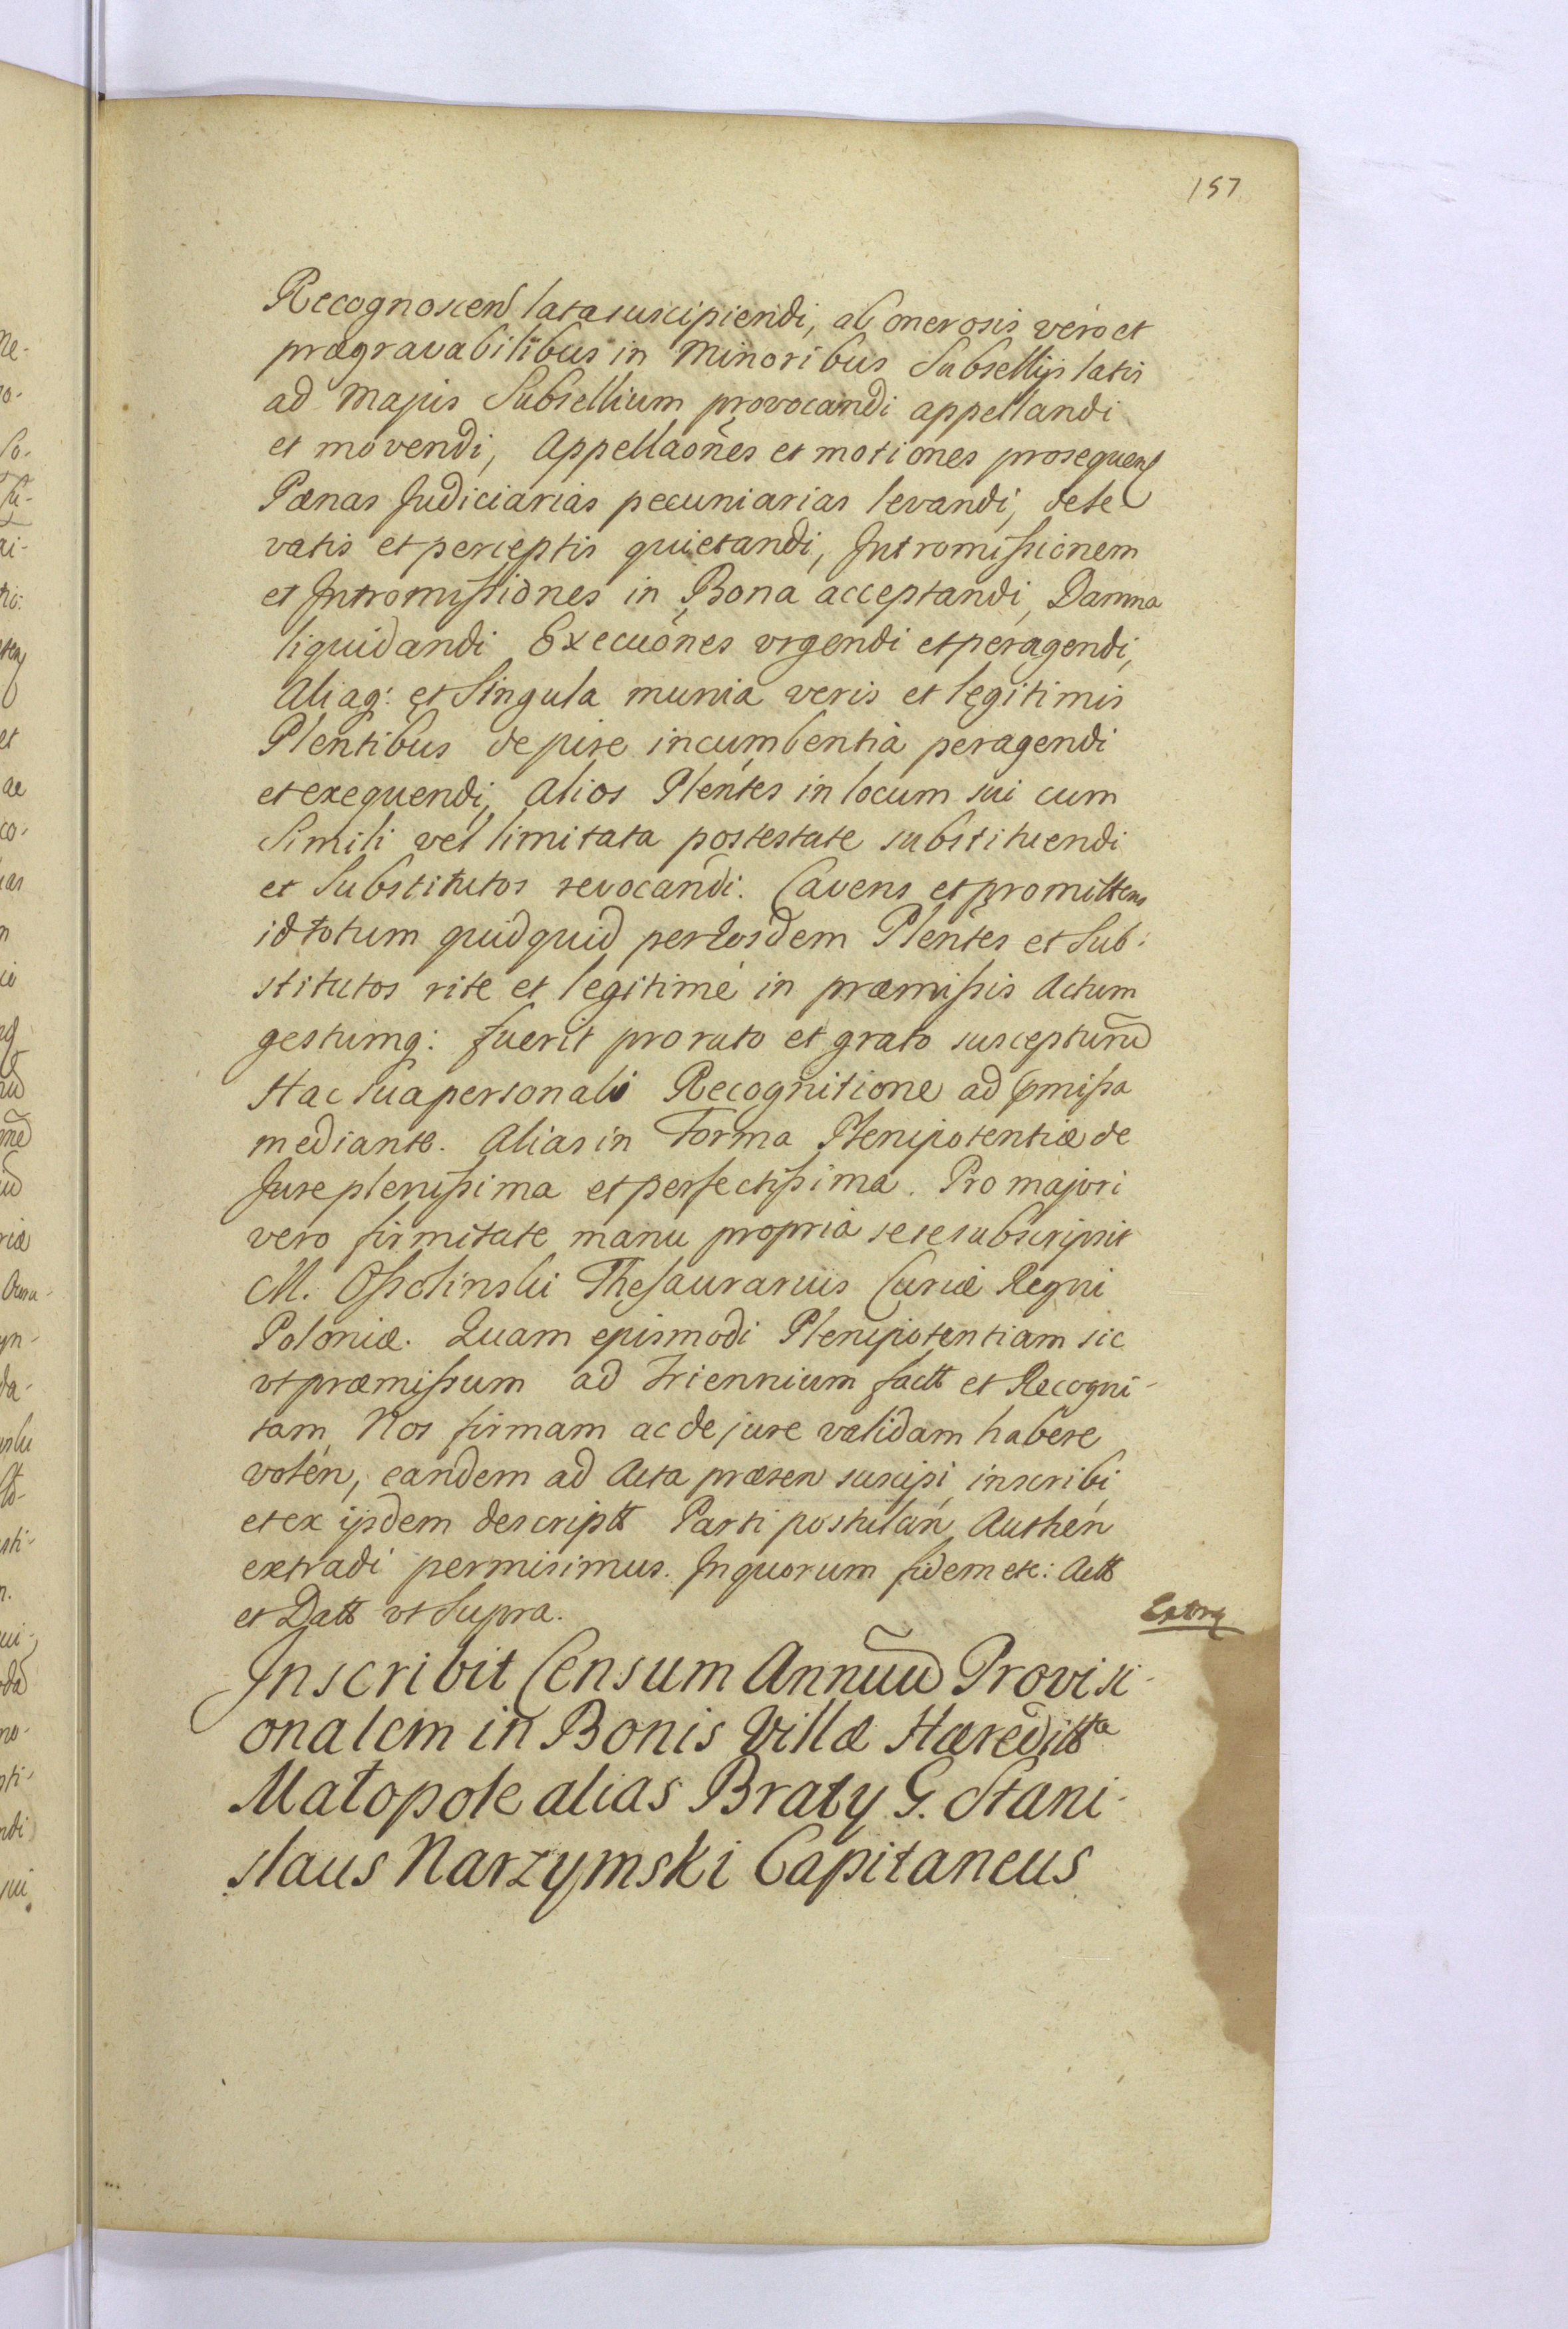 157
Recognoscen lata suscipiendi, ab onerosis vero et
prægravabilibus in Minoribus Subsellijs latis
ad Majus Subsellium provocandi appellandi
et movendi, Appellaõnes et motiones prosequen
Pænas Judiciarias pecuniarias levandi, de le
vatis et perceptis quietandi, Intromissionem
et Intromissiones in Bona acceptandi, Damna
liquidandi Execuõnes vrgendi et peragendi,
Aliaq: et Singula munia veris et legitimis
Plentibus de jure incumbentia peragendi
et exequendi, Alios Plentes in locum sui cum
Simili vel limitata postestate substituendi
et Substitutos revocandi. Cavens et promittens
id totum quidquid per Eosdem Plentes et Sub:
stitutos rite et legitimé in præmissis Actum
gestumq: fuerit pro rato et grato suscepturũ
Hac sua personali Recognitione ad pmissa
mediante. Alias in Forma Plenipotentiæ de
Jure plenissima et perfectissima. Pro majori
vero firmitate manu propria sese subscripsit
M. Ossolinski Thesaurarius Curiæ Regni
Poloniæ. Quam ejusmodi Plenipotentiam sic
vt præmissum ad Triennium factt et Recogni-
tam Nos firmam ac de jure validam habere
volen, eandem ad Acta præsen suscipi, inscribi
et ex ijsdem descriptt Parti postulan Authen
extradi permisimus. In quorum fidem etc: Actt
et Datt vt Supra.
Extra
Inscribit Censum Annuũ Provisi-
onalem in Bonis Villæ Hæreditt ta
Małopole alias Brały G. Stani-
slaus Narzymski Capitaneus